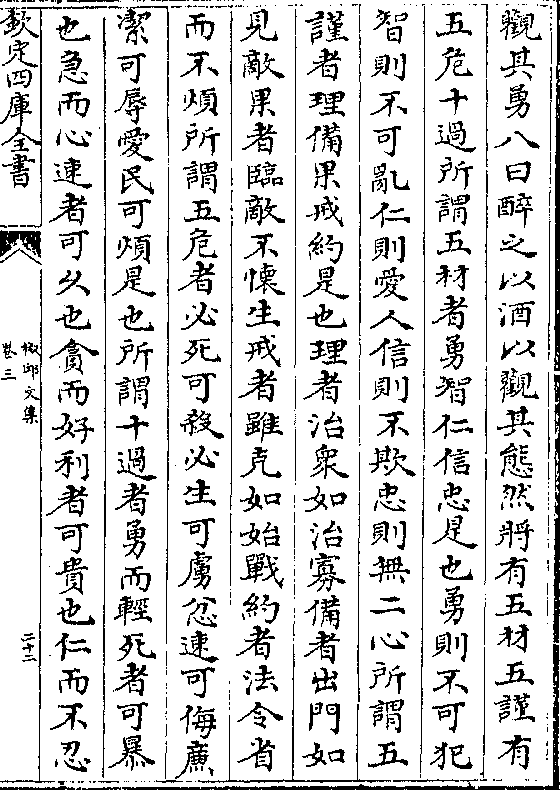 觀其勇八曰醉之以酒以觀其態然將有五材五謹有
五危十過所謂五材者勇智仁信忠是也勇則不可犯
智則不可亂仁則愛人信則不欺忠則無二心所謂五
謹者理備果戒約是也理者治衆如治寡備者出門如
見敵果者臨敵不懐生戒者雖克如始戰約者法令省
而不煩所謂五危者必死可殺必生可虜忿速可侮亷
潔可辱愛民可煩是也所謂十過者勇而輕死者可暴
也急而心速者可乆也貪而好利者可貴也仁而不忍
欽定四庫全書
椒邱文集
卷三
二十二